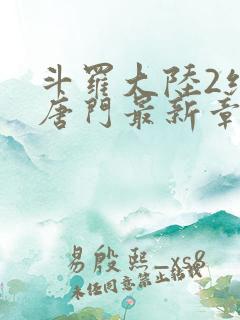 斗羅大陸2
唐門最新章
易殷熙_xs8
未經同意禁止轉載